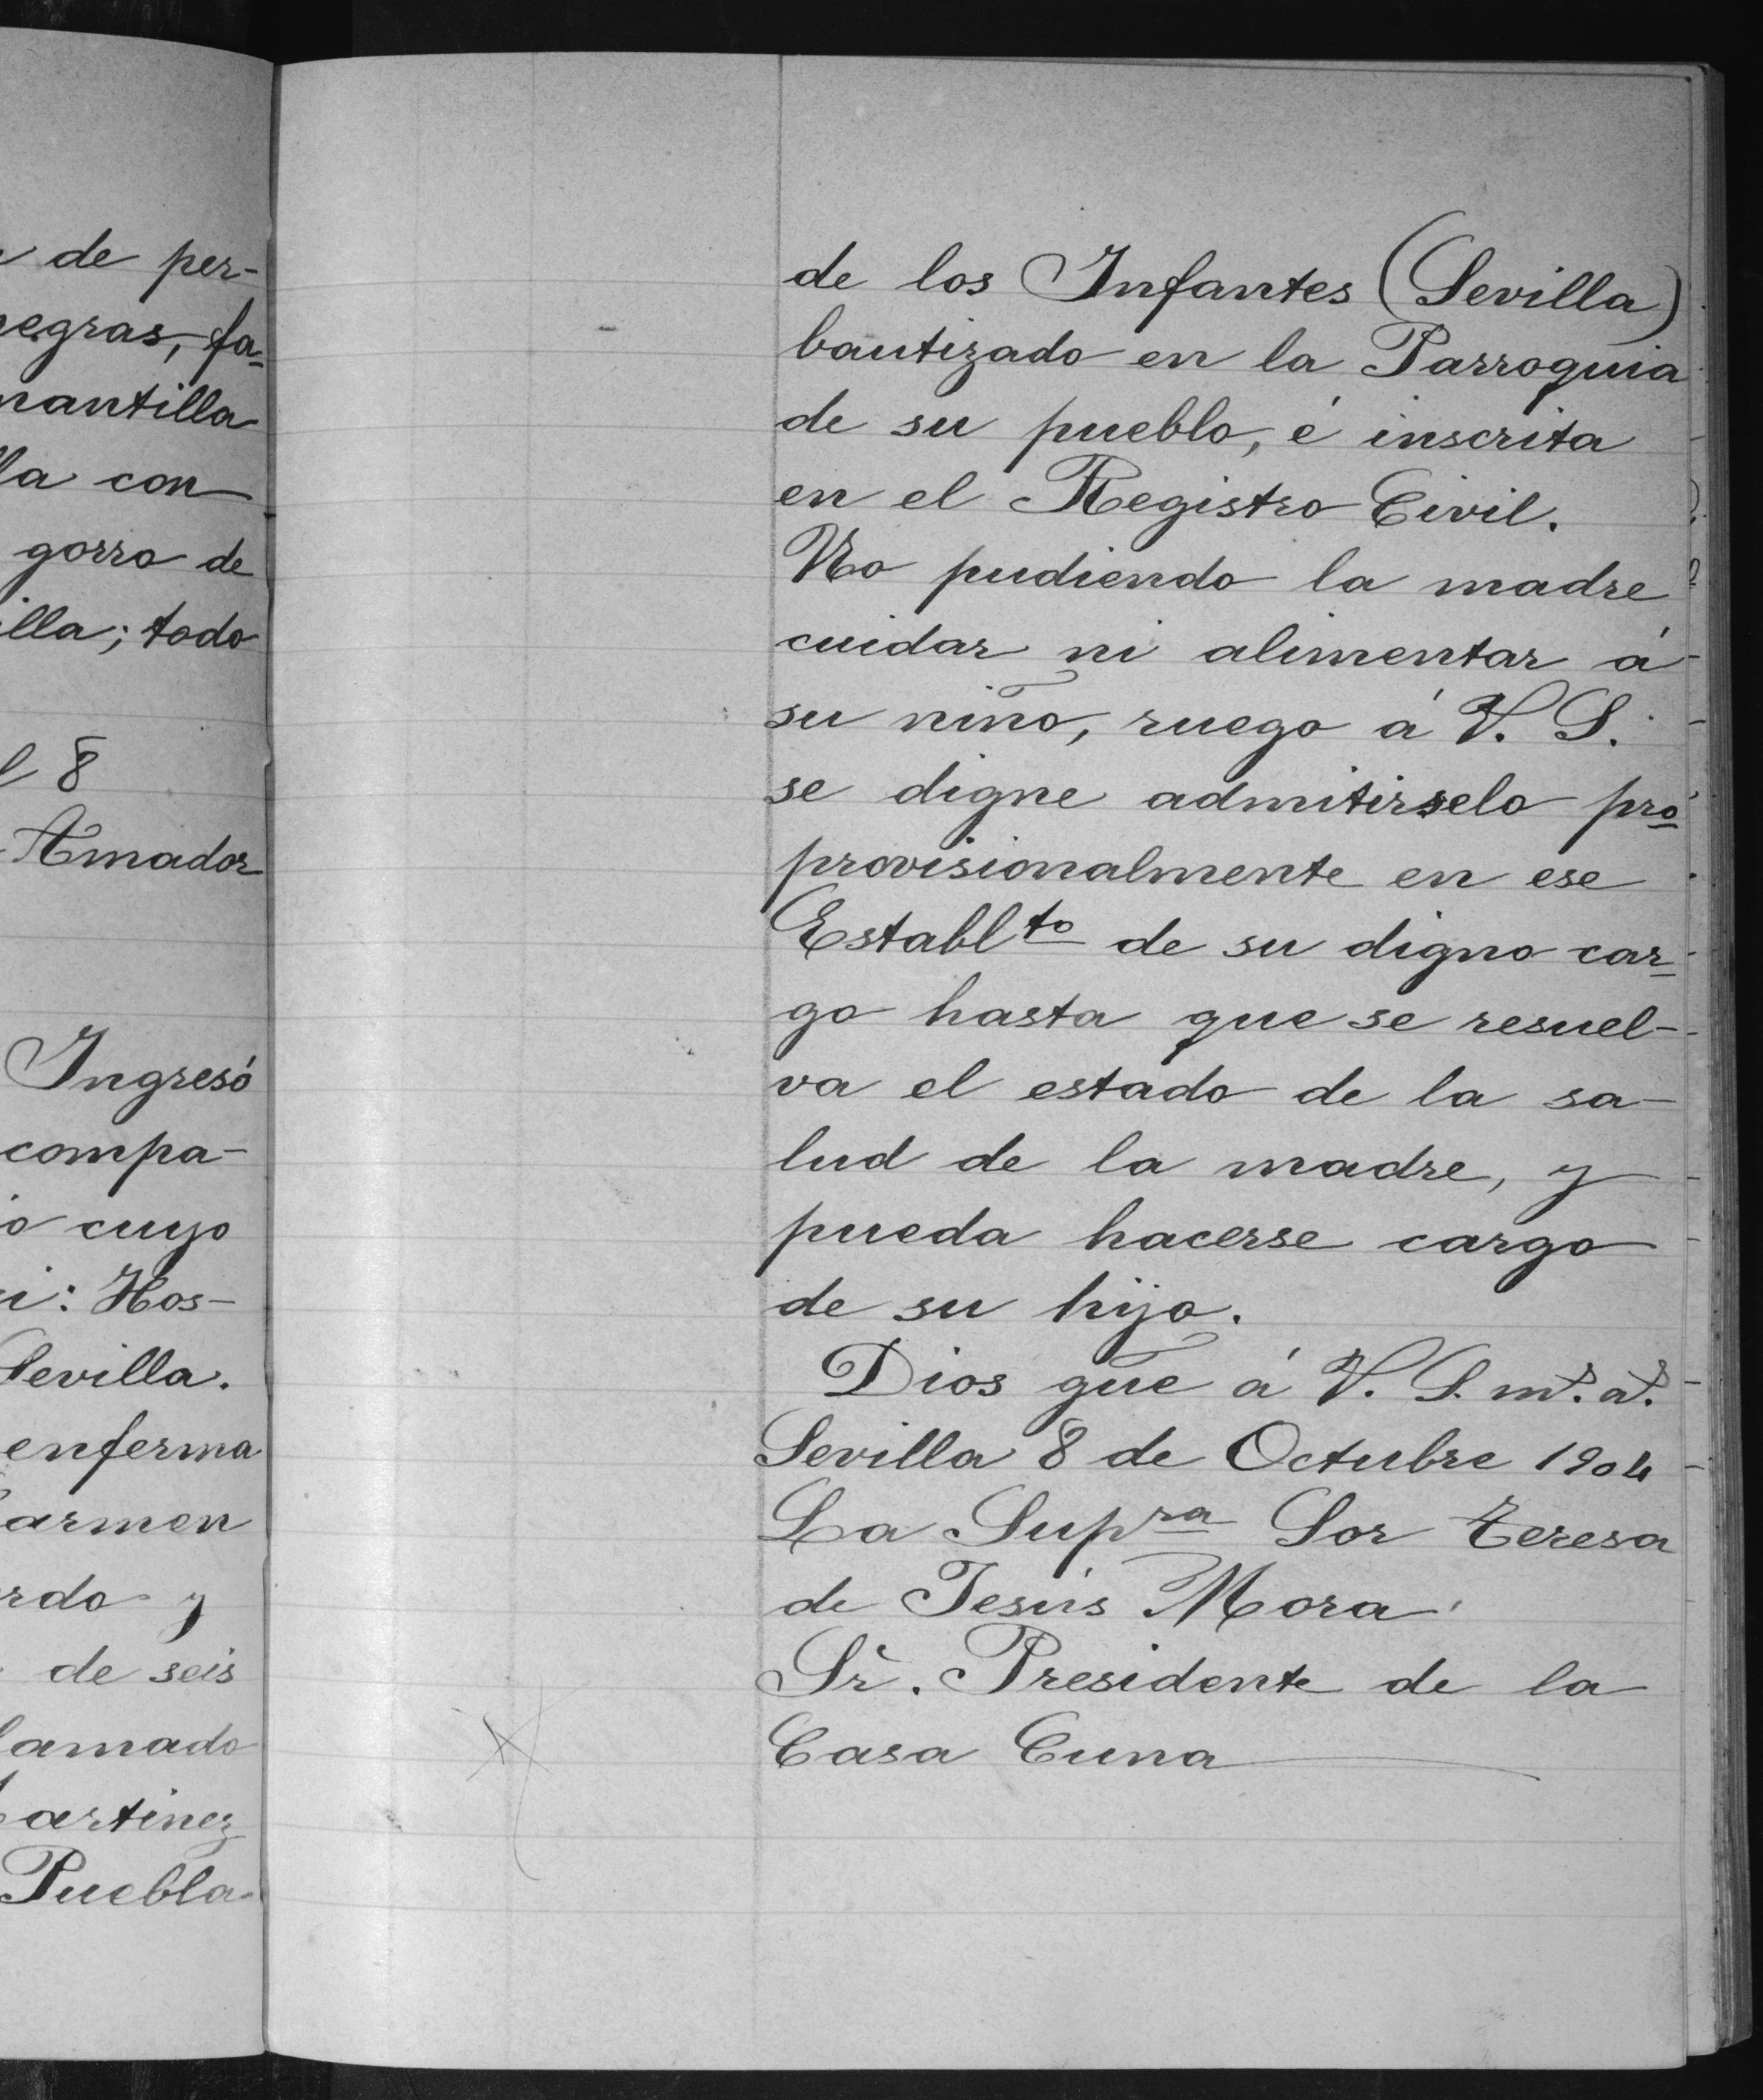 de per-
negras, fa-
mantilla
lla con
gorro de
illa; todo
8
Amador
Ingresó
compa-
cuyo
Hos-
Sevilla.
enferma
armen
rdo y
de seis
lamado
artinez
Puebla
de los Infantes (Sevilla)
bautizado en la Parroquia
de su pueblo, é inscrita
en el Registro Civil.
No pudiendo la madre
cuidar ni alimentar á
su niño, ruego á V. S.
se digne admitirselo pro
provisionalmente en ese
Establto de su digno car-
go hasta que se resuel-
va el estado de la sa-
lud de la madre, y
pueda hacerse cargo
de su hijo.
Dios gue á V. S. ms. as.
Sevilla 8 de Octubre 1904
La Supra Sor Teresa
de Jesús Mora
Sr. Presidente de la
Casa Cuna